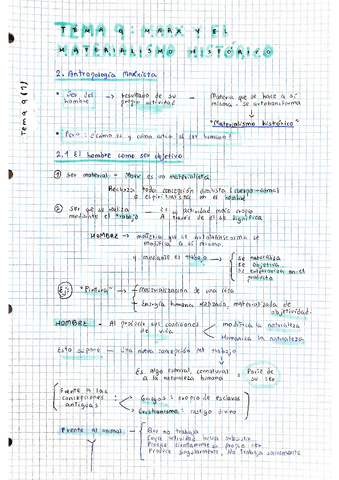 TEMA 9: MARX Y EL
MATERIALISMO HISTÓRICO
Tema 9 (1)
2. Antropología Marxista
• Ser del hombre → resultado de su propia actividad → Materia que se hace a sí misma - se autotransforma
"Materialismo histórico"
• Pero: ¿cómo es y cómo actúa el ser humano?
2.1 El hombre como ser objetivo
① Ser material - Marx es un materialista
Rechaza toda concepción dualista (cuerpo-alma)
o espiritualista en el hombre
② Ser que se realiza mediante el trabajo - Es su actividad más propia
A través de el
HOMBRE → materia que se autotransforma se
modifica a sí mismo.
y mediante el trabajo → Se naturaliza
Se objetiva
Se exterioriza en el
producto
Ej: "Pintura" - Materialización de una idea
Energía humana materializada de
objetividad.
HOMBRE - Al producir sus condiciones de vida
modifica la naturaleza
Humaniza la naturaleza
Esto supone - Una nueva concepción del trabajo
Es algo esencial, connatural a la naturaleza humana : Parte de su ser
Frente a las concepciones antiguas
Griegos: propio de esclavos
Cristianismo: castigo divino
Frente al animal
Que no trabaja
Cuya actividad busca subsistir
Produce directamente su propio ser
Produce singularmente, No trabaja socialmente